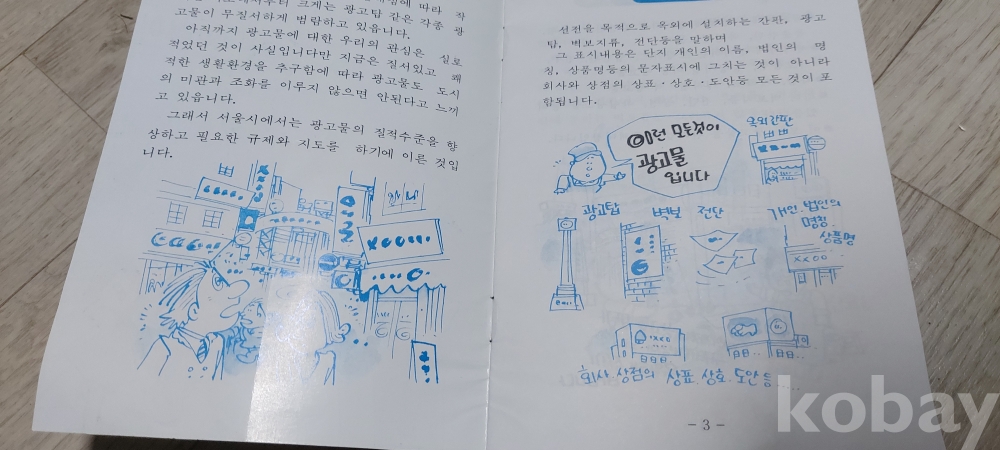 크게는 광고탑 같은 각종 광
고물이 무질서하게 범람하고 있읍니다.
아직까지 광고물에 대한 우리의 관심은 실로
적었던 것이 사실입니다만 지금은 질서있고 쾌
적한 생활환경을 추구함에 따라 광고물도 도시
의 미관과 조화를 이루지 않으면 안된다고 느끼
고 있읍니다.
그래서 서울시에서는 광고물의 질적수준을 향
상하고 필요한 규제와 지도를 하기에 이른 것입
니다.
선전을 목적으로 옥외에 설치하는 간판, 광고
탑, 벽보지류, 전단등을 말하며
그 표시내용은 단지 개인의 이름, 법인의 명
칭, 상품명등의 문자표시에 그치는 것이 아니라
회사와 상점의 상표·상호·도안등 모든 것이 포
함됩니다.
이런 모든것이
광고물
입니다
옥외간판
광고탑
벽보
전단
개인. 법인의
명칭.
상품명
회사 상점의 상표. 상호. 도안 등.....
- 3 -
kobay